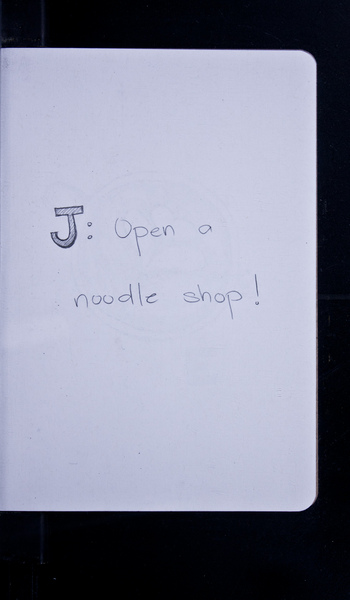 J: Open a
noodle shop!